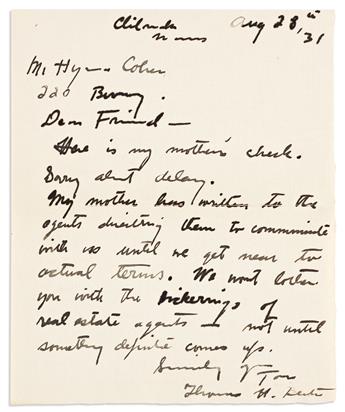 Aug 28, 31
Mass
Mr Hyman Cohen
220 Bway.
Dear Friend —
Here is my mother's check.
Sorry abt delay.
My mother has written to the
agents directing them to communicate
with us until we get near to
actual terms. We wont bother
you with the bickerings of
real estate agents — not until
something definite comes up.
Sincerely Yrs
Thomas W.